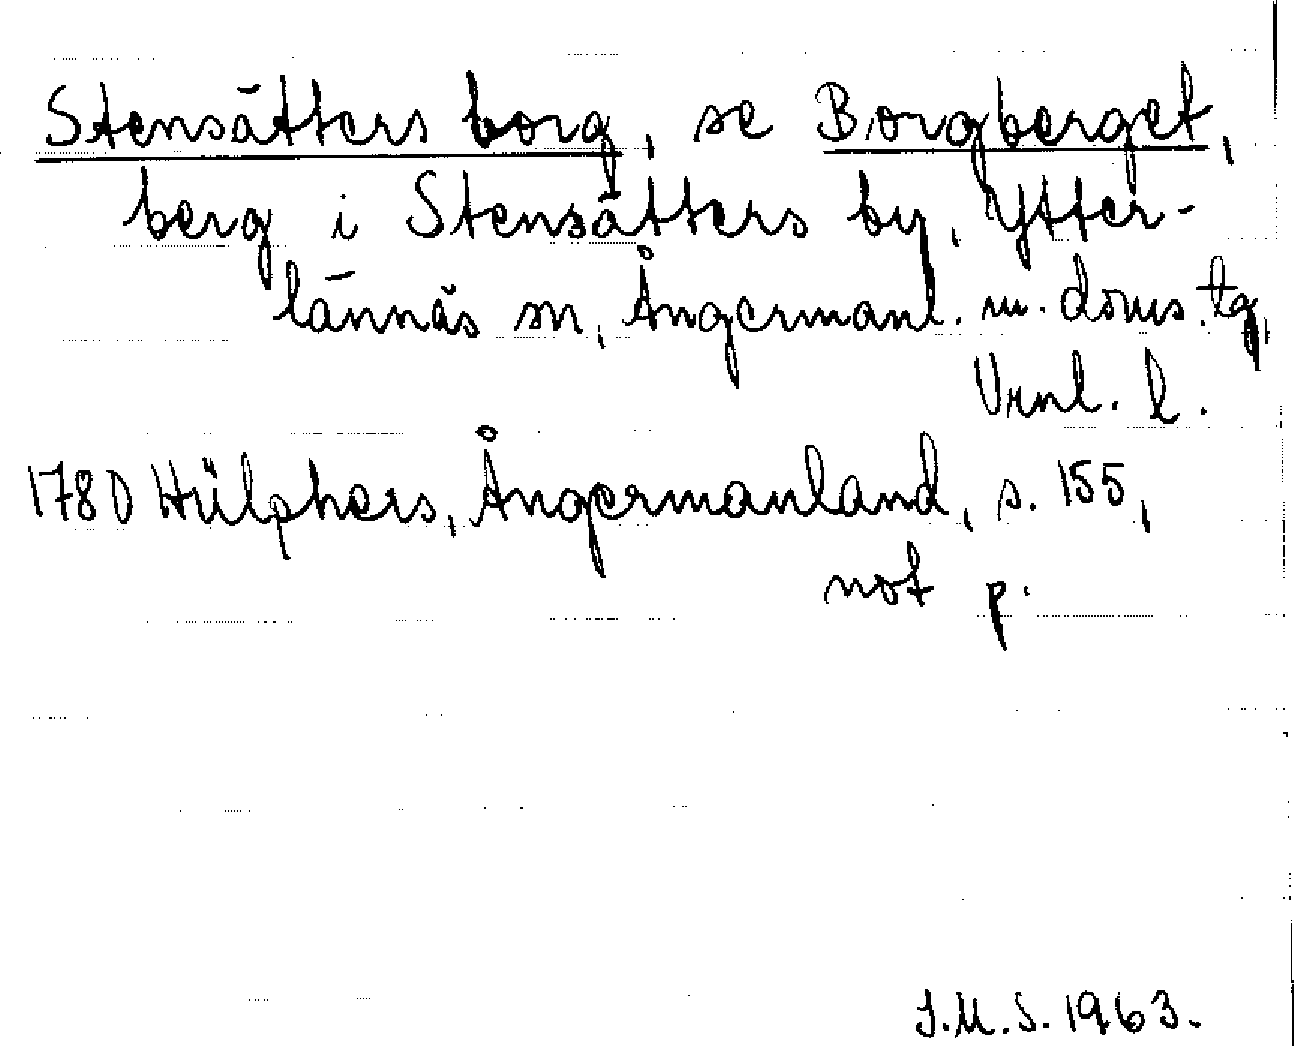 Stensätters borg, se Borgberget,
berg i Stensätters by, Ytter-
lännäs sn, Ångermanl. m. doms. tg,
Vrnl. l.
1780 Hülphers, Ångermanland, s. 155,
not p.
J.M.S. 1963.